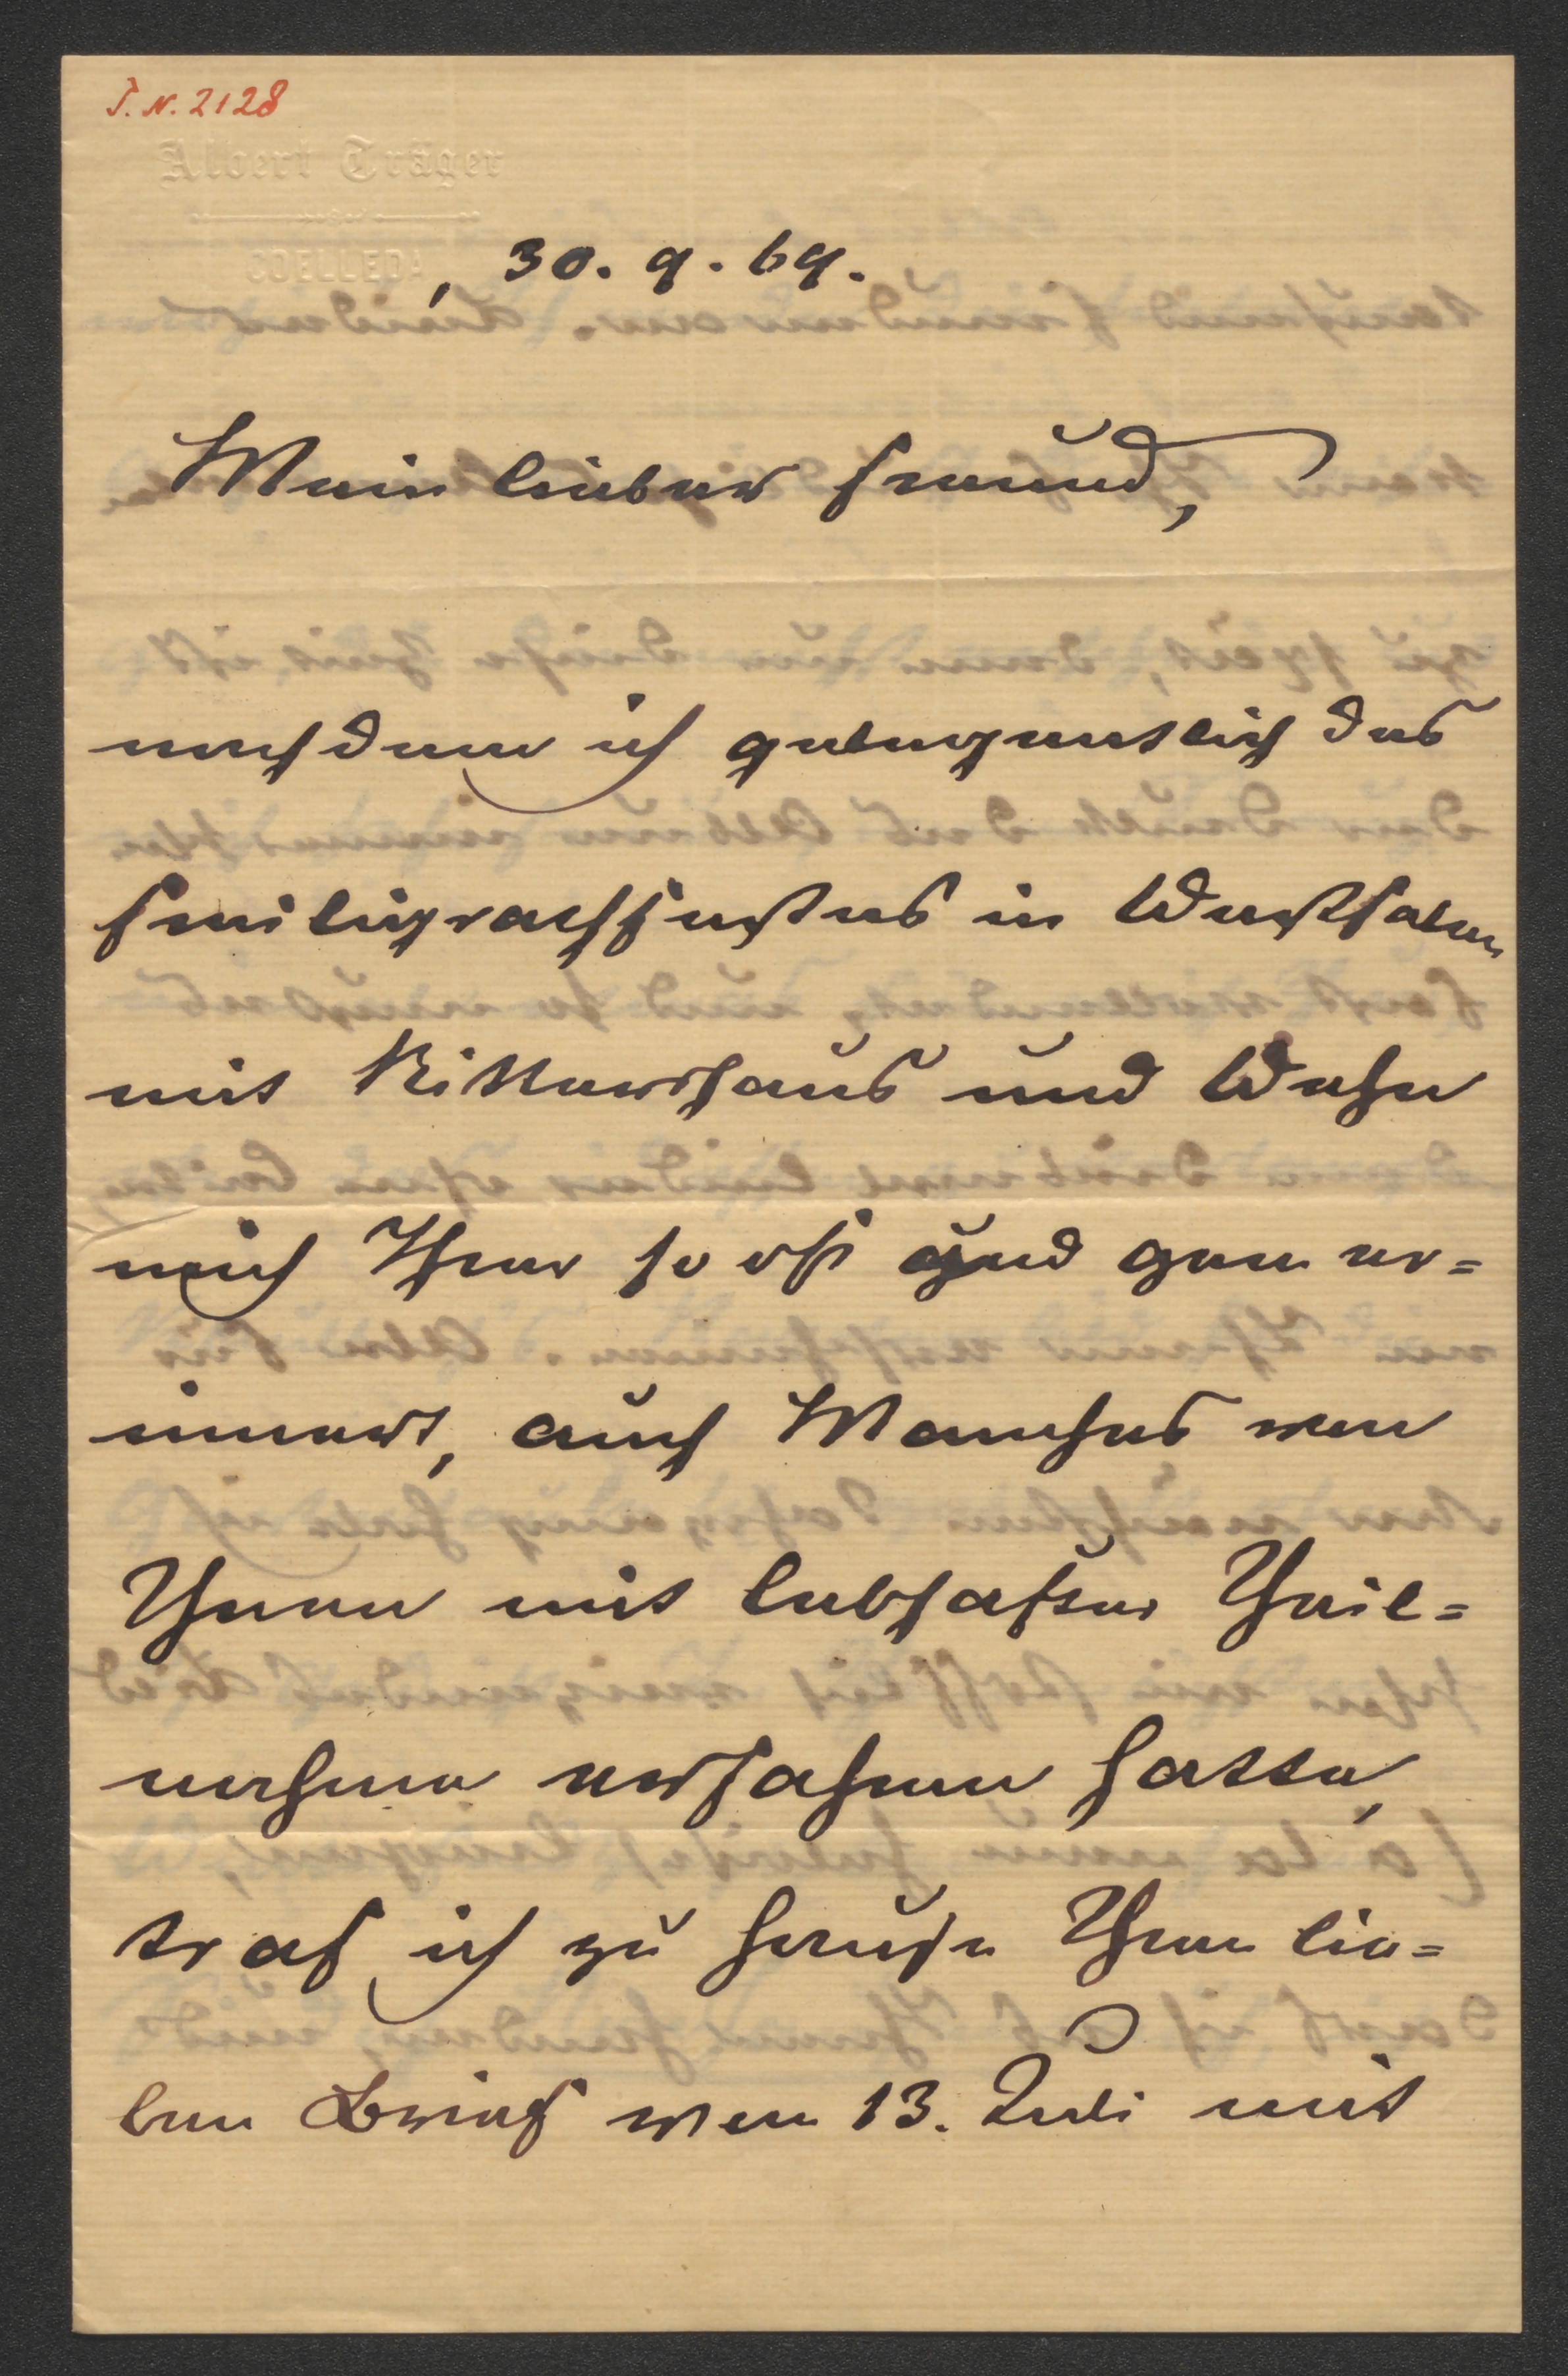 I. N. 2128
Albert Träger
COELLEDA
, 30. 9. 69.
Mein lieber Freund,
nachdem ich gelegentlich des
Freiligrathfestes in Westfalen
mit Rittershaus und Wehn
mich Ihrer so oft und gern er=
innert, auch Manches von
Ihnen mit lebhafter Theil=
nahme erfahren hatte,
traf ich zu Hause Ihren lie=
ben Brief vom 13. Juli mit